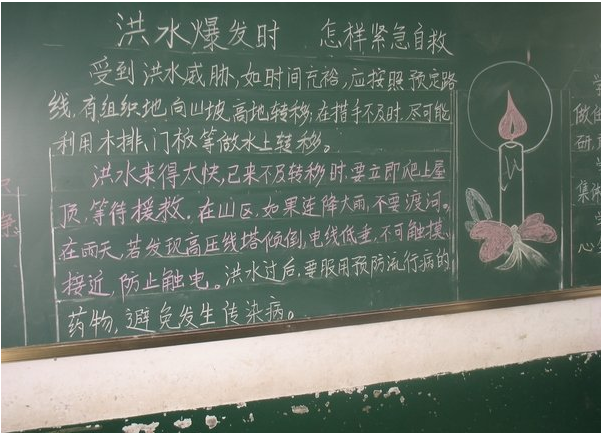 洪水爆发时 怎样紧急自救
受到洪水威胁,如时间充裕,应按照预定路
线,有组织地向山坡,高地转移,在措手不及时,尽可能
利用木排、门板等做水上转移。
洪水来得太快,已来不及转移时,要立即爬上屋
顶,等待援救。在山区,如果连降大雨,不要渡河。
在雨天,若发现高压线塔倾倒,电线低垂,不可触摸、
接近,防止触电。洪水过后,要服用预防流行病的
药物,避免发生传染病。
做
研
集体
心